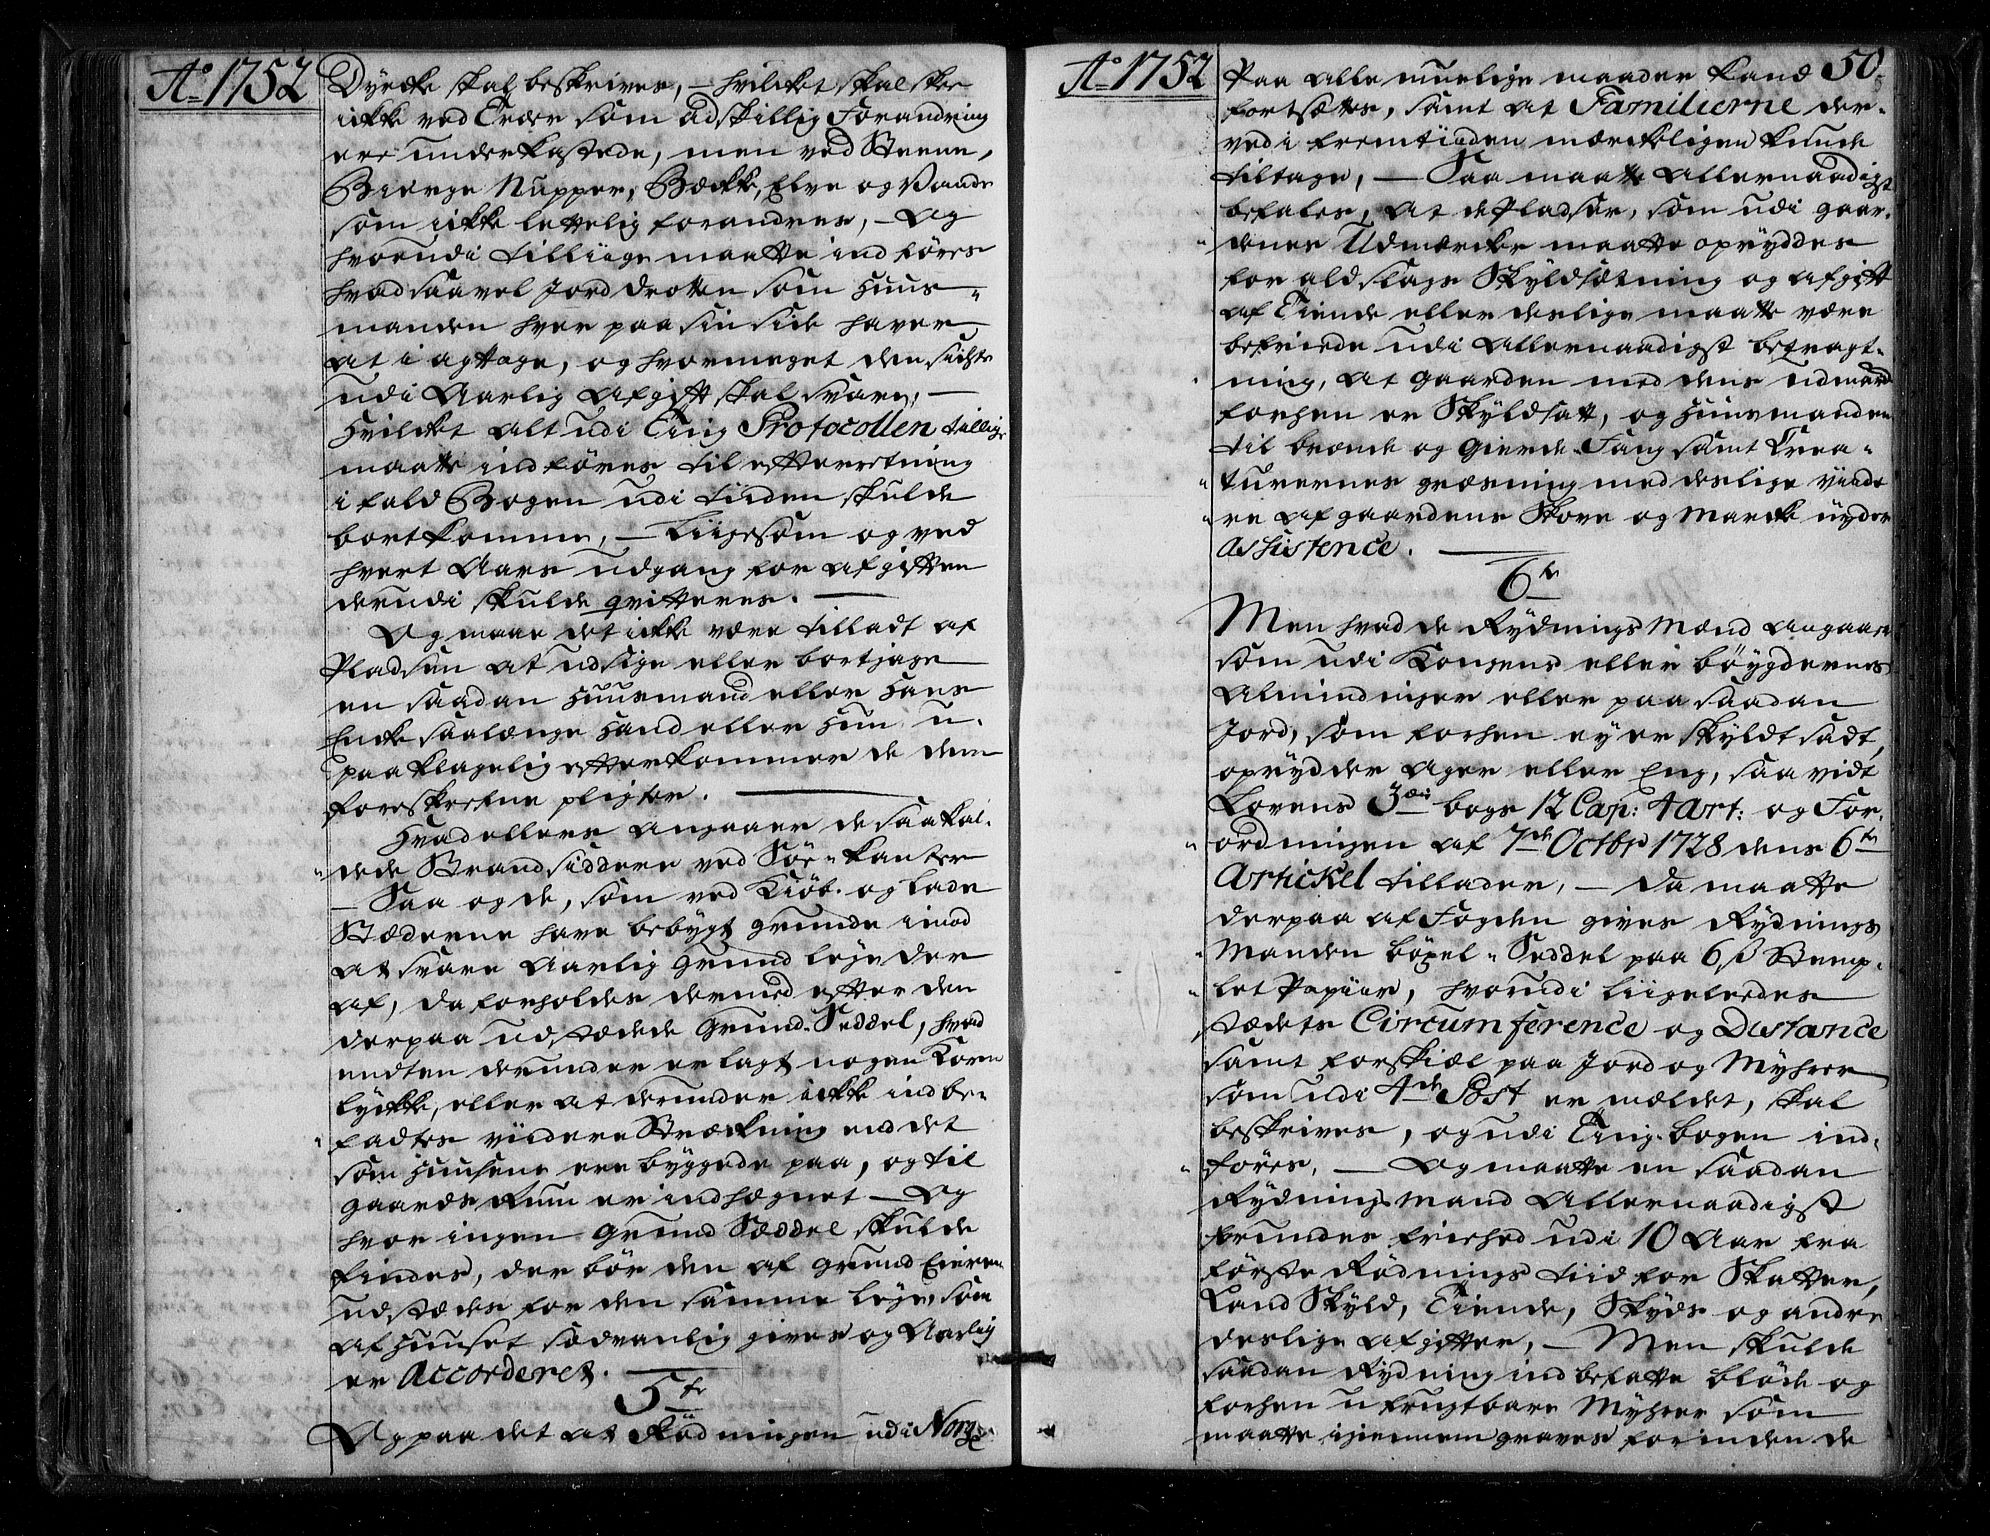 Ao 1752
Dyrcke skal beskrives, – hvilcket skal skee
icke ved Træer som adskillig Forandring
ere underkastede, men ved Steene,
Bierge Nupper, Bæcke, Elve og Vande
som icke lettelig forandres, – Og
hvorudi tilliige maatte indføres
hvad saavel Jorddrotten som Huus-
manden hver paa sin side haver
at i agttage, og hvormeget den sidste
udi Aarlig Afgift skal svare, –
Hvilcket alt udi Ting Protocollen tillige
maatte indføres til efterretning
i fald Bogen udi tiiden skulde
bortkomme, – Liigesom og ved
hvert Aars udgang for afgiften
derudi skulde qvitteres. –
Og maae det icke være tilladt af
Pladsen at udsige eller bortjage
en saadan Huusmand eller Hans
Encke saalænge Hand eller Hun u-
paaklagelig efterkommer de dem
foreskrefne pligter. –
Hvad ellers angaaer de saa kal-
dede Strandsiddere ved Søe-kanten
– Saa og de, som ved Kiøb- og Lade
Stæderne have bebygt grunde imod
at svare Aarlig Grundleje der
af, da forholdes dermed efter den
derpaa udstædede Grund-Seddel, hvad
endten derunder er lagt nogen Korn
lycke, eller at derunder icke indbe-
fadtes viidere Strækning end det
som Huusene ere byggede paa, og til
gaards Rum er indhægnet – Og
hvor ingen Grund Seddel skulde
findes, der bør den af Grund Eieren
udstædes for den samme leje, som
af Huuset sædvanlig gives og Aarlig
er Accorderet. –
5te
Og paa det at Rødningen udi Norge
Ao 1752
50.
Paa alle muelige maader kand
fortsættes, samt at Familierne der-
ved i fremtiiden mærckeligen kunde
tiltage, – Saa maatte Allernaadigst
befales, at de Pladser, som udi gaar-
denes Udmærcker maatte opryddes
for ald slags Skyldsætning og afgift
af Tiende eller deslige maatte være
befriede udi Allernaadigst betragt-
ning, at gaarden med dens udmarck
forhen er Skyldsatt, og Huusmanden
til brænde og Gierde-Fang samt Crea-
turernes græsning med deslige viide-
re af gaardens Skove og Marck nyder
Assistence. –
6te
Men hvad de Rydnings Mænd angaaer
som udi Kongens eller bøygdernes
Almindinger eller paa saadan
Jord, som forhen ey er skyldt sadt,
oprydder Ager eller Eng, saa vidt
Lovens 3die bogs 12 Cap: 4 Art: og For-
ordningen af 7de Octbr 1728 dens 6te
Artickel tillader, – da maatte
derpaa af Fogden gives Rydnings
Manden bøxel-Seddel paa 6 s Stemp-
let Papiir, hvorudi liigeledes
stædets Circumference og Distance
samt forskiæl paa Jord og Myhrer
som udi 4de Post er meldet, skal
beskrives, og udi Ting-bogen ind-
føres, – Og maatte en saadan
Rydnings mand Allernaadigst
forundes friehed udi 10 Aar fra
første Rødnings tiid for Skatter,
Land Skyld, Tiende, Skyds og andre
deslige afgifter, – Men skulde
saadan Rydning indbefatte bløde og
forhen ufrugtbare Myhrer som
maatte igiennemgraves forinden de